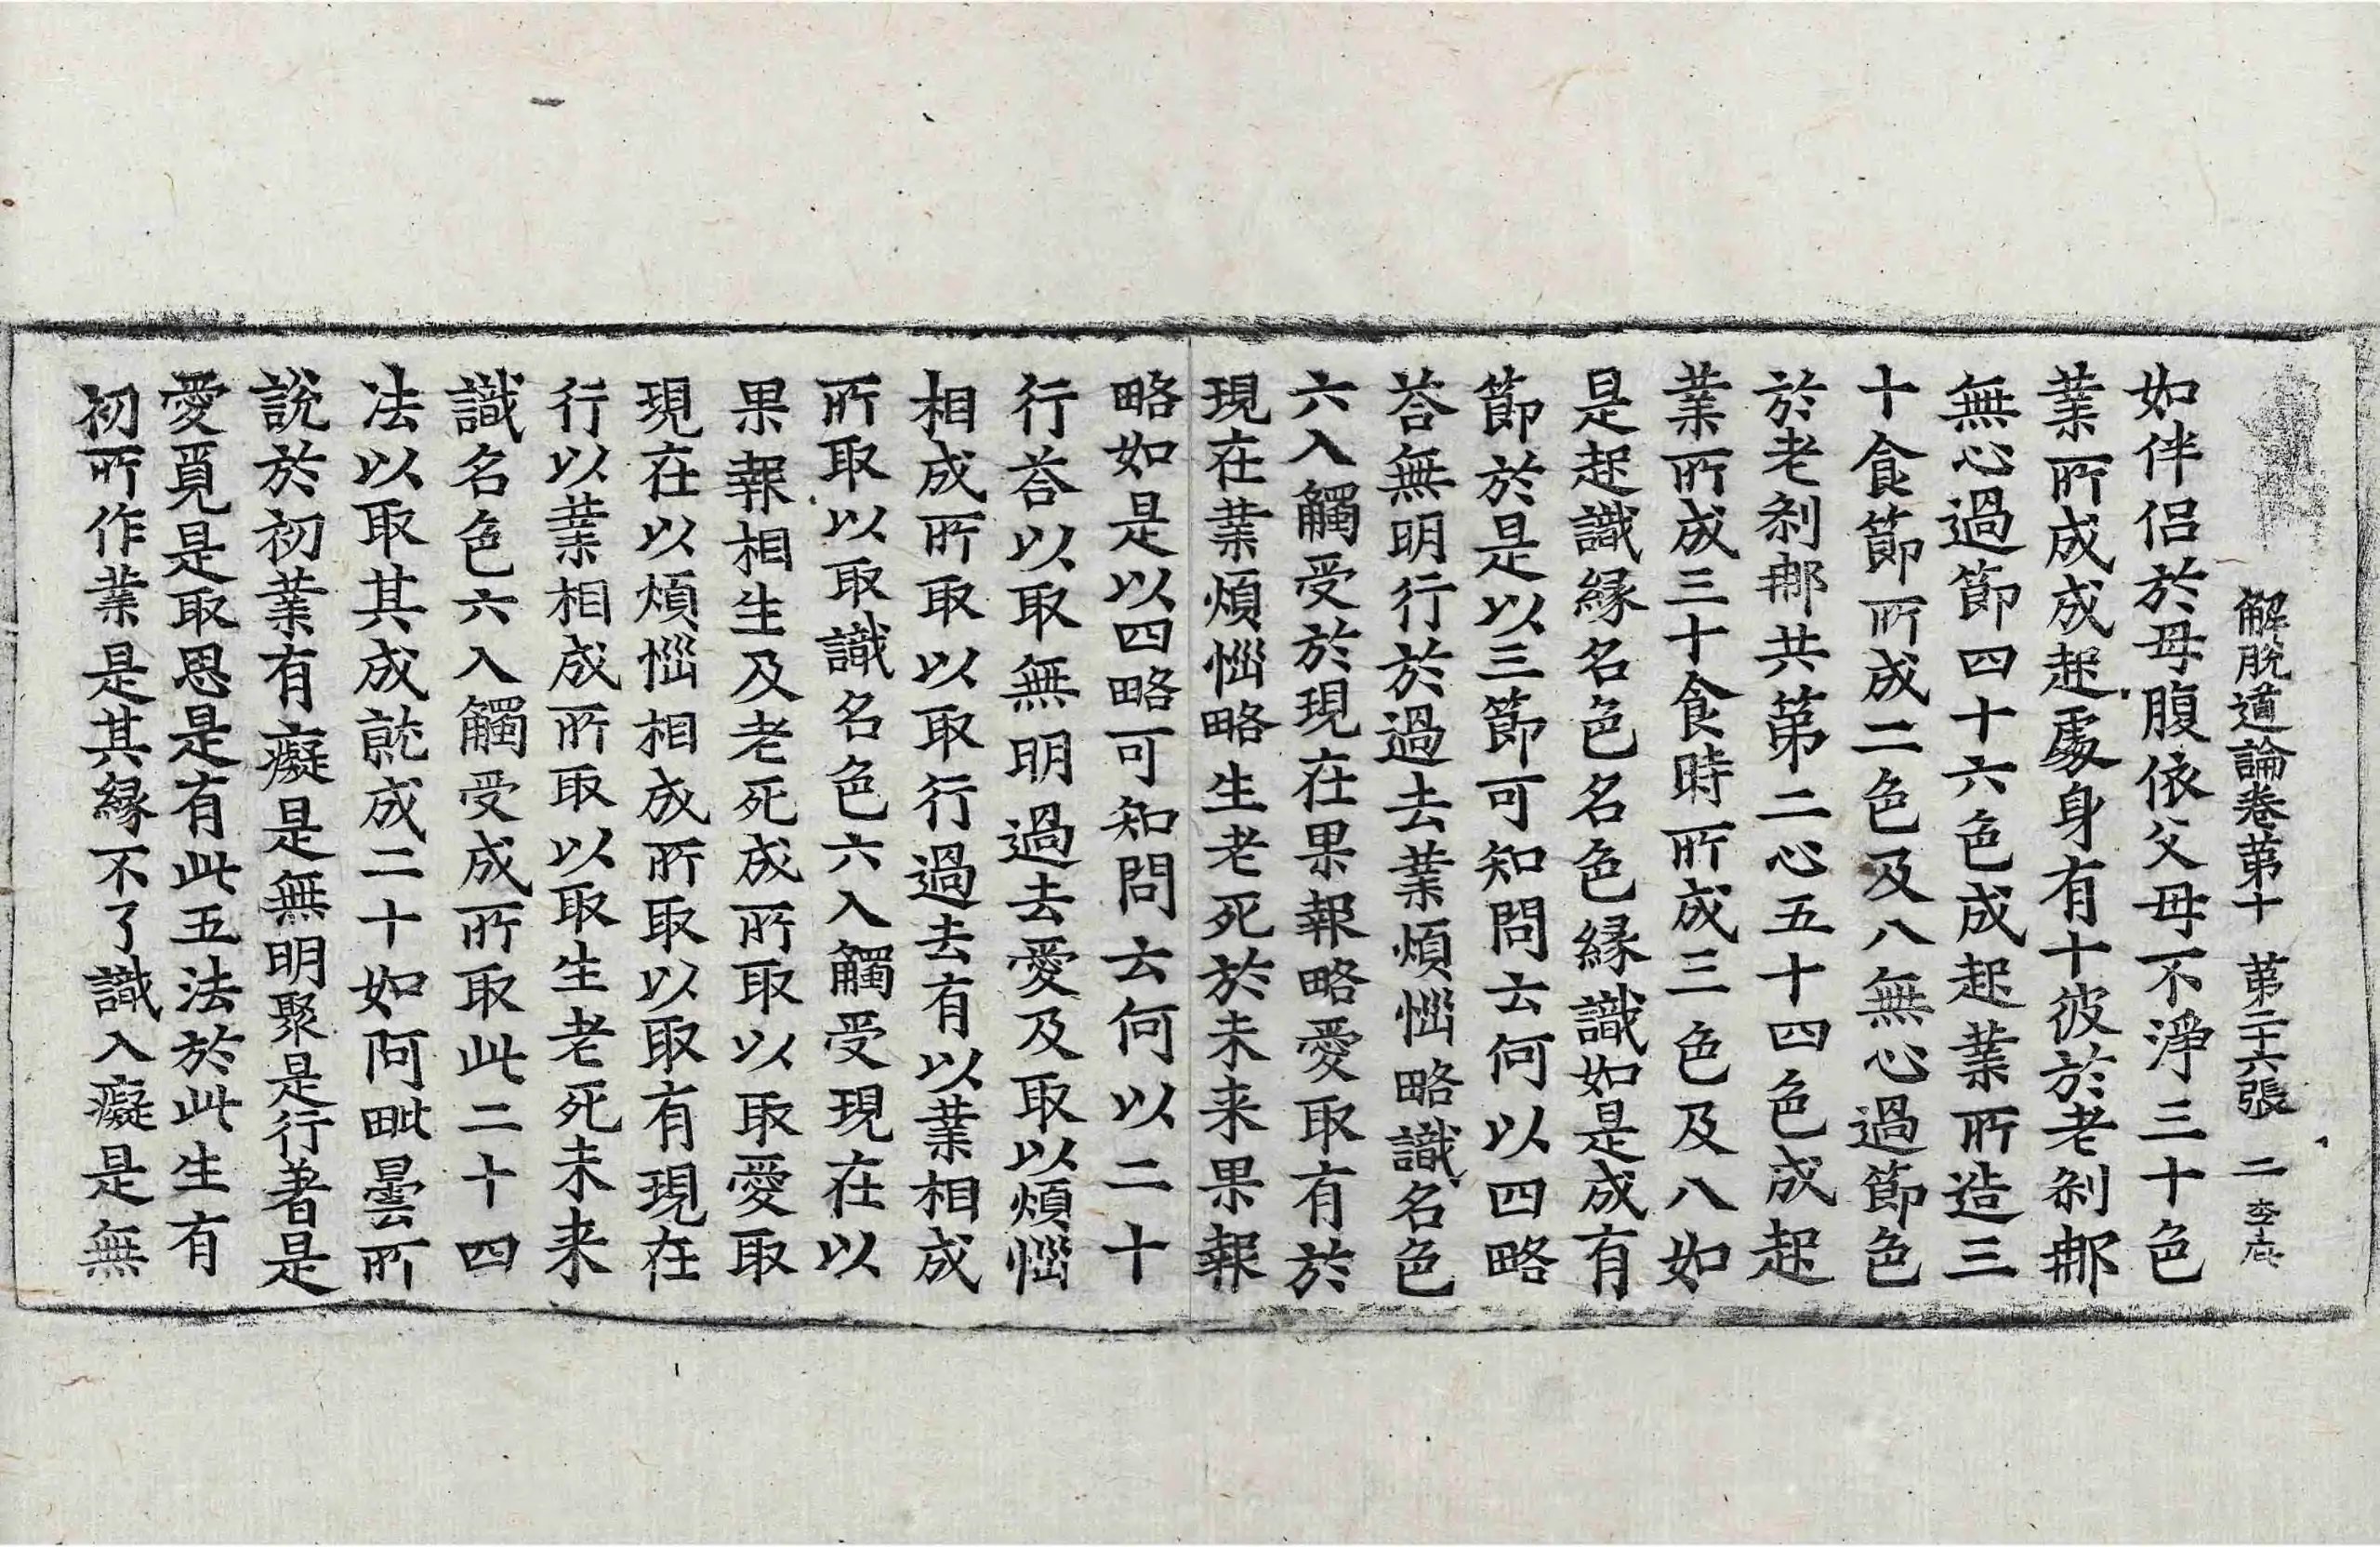 解脫道論卷第十 第二十六張 二
如伴侶於母腹依父母不淨三十色
業所成成起處身有十彼於老刹那
無心過節四十六色成起業所造三
十食節所成二色及八無心過節色
於老刹那共第二心五十四色成起
業所成三十食時所成三色及八如
是起識緣名色名色緣識如是成有
節於是以三節可知問云何以四略
荅無明行於過去業煩惱略識名色
六入觸受於現在果報略愛取有於
現在業煩惱略生老死於未来果報
略如是以四略可知問云何以二十
行荅以取無明過去愛及取以煩惱
相成所取以取行過去有以業相成
所取以取識名色六入觸受現在以
果報相生及老死成所取以取愛取
現在以煩惱相成所取以取有現在
行以業相成所取以取生老死未来
識名色六入觸受成所取此二十四
法以取其成就成二十如阿毗曇所
說於初業有癡是無明聚是行著是
愛覓是取思是有此五法於此生有
初所作業是其緣不了識入癡是無